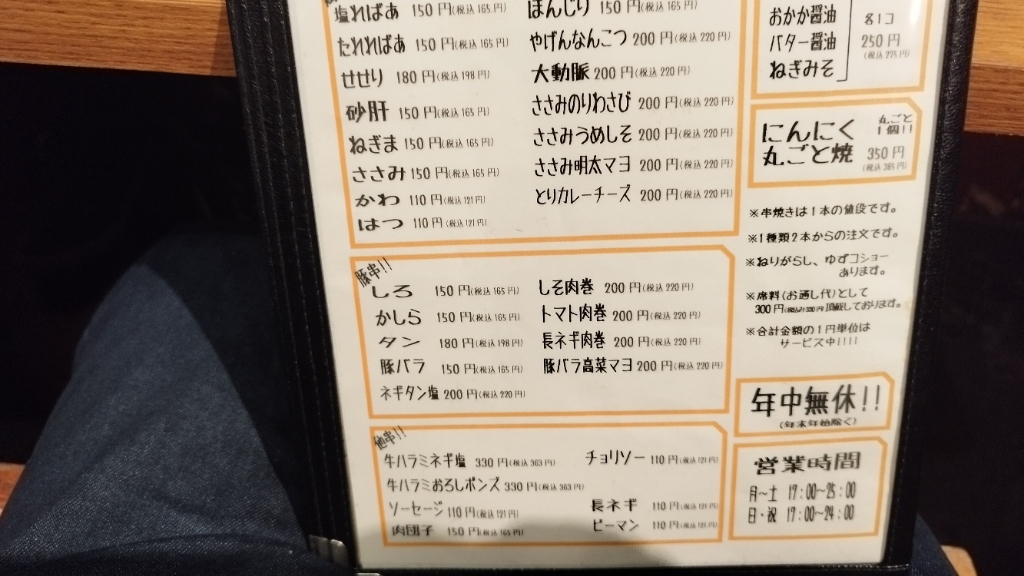 塩ればあ 150円(税込165円)
たれればあ 150円(税込165円)
せせり 180円(税込198円)
砂肝 150円(税込165円)
ねぎま 150円(税込165円)
ささみ 150円(税込165円)
かわ 110円(税込121円)
はつ 110円(税込121円)
ぼんじり 150円(税込165円)
やげんなんこつ 200円(税込220円)
大動脈 200円(税込220円)
ささみのりわさび 200円(税込220円)
ささみうめしそ 200円(税込220円)
ささみ明太マヨ 200円(税込220円)
とりカレーチーズ 200円(税込220円)
豚串!!
しろ 150円(税込165円)
かしら 150円(税込165円)
タン 180円(税込198円)
豚バラ 150円(税込165円)
ネギタン塩 200円(税込220円)
しそ肉巻 200円(税込220円)
トマト肉巻 200円(税込220円)
長ネギ肉巻 200円(税込220円)
豚バラ高菜マヨ 200円(税込220円)
他串!!
牛ハラミネギ塩 330円(税込363円)
牛ハラミおろしポンズ 330円(税込363円)
ソーセージ 110円(税込121円)
肉団子 150円(税込165円)
チョリソー 110円(税込121円)
長ネギ 110円(税込121円)
ピーマン 110円(税込121円)
おかか醤油
バター醤油
ねぎみそ
各1コ
250円
(税込275円)
にんにく
丸ごと焼
丸ごと
1個!!
350円
(税込385円)
※串焼きは1本の値段です。
※1種類2本からの注文です。
※ねりがらし、ゆずコショー
あります。
※席料(お通し代)として
300円(税込330円)頂戴しております。
※合計金額の1円単位は
サービス中!!!!
年中無休!!
(年末年始除く)
営業時間
月〜土 17:00〜25:00
日・祝 17:00〜24:00